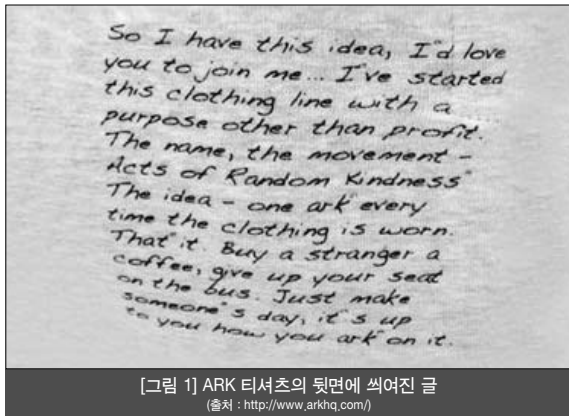 So I have this idea, I'd love
you to join me... I've started
this clothing line with a
purpose other than profit.
The name, the movement -
Acts of Random Kindness"
The idea - one ark every
time the clothing is worn.
That"it. Buy a stranger a
coffee, give up your seat
on the bus. Just make
someone"s day, it"s up
to you how you ark" on it.
[그림 1] ARK 티셔츠의 뒷면에 씌여진 글
(출처 : http://www.arkhq.com/)